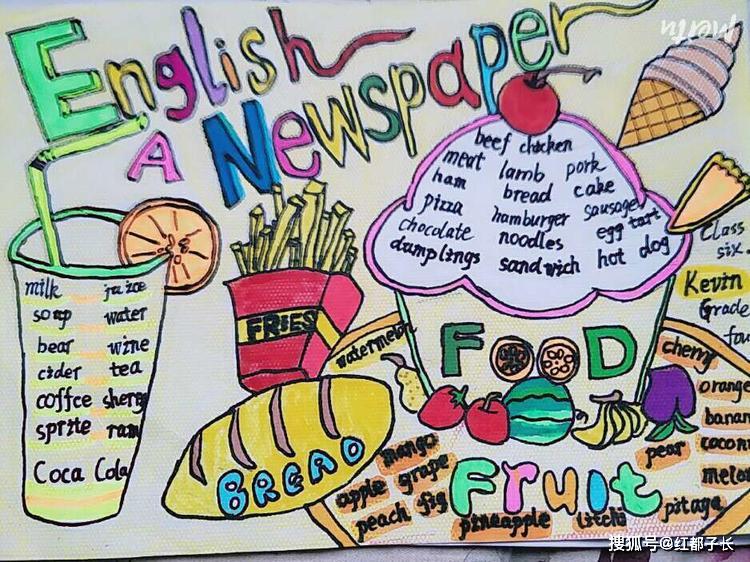 English
A Newspaper
beef chicken
meat lamb pork
ham bread cake
pizza hamburger sausage
chocolate noodles egg tart
dumplings sandwich hot dog
Class
six.
Kevin
Grade
milk juice
soup water
bear wine
cider tea
coffce sherry
sprite ram
Coca Cola
FRIES
BREAD
FOOD
watermelon
cherry
orange
banan
coconu
melo
pear
pitaya
mango
apple grape
peach fig
Fruit
pineapple litchi
搜狐号@红都子长